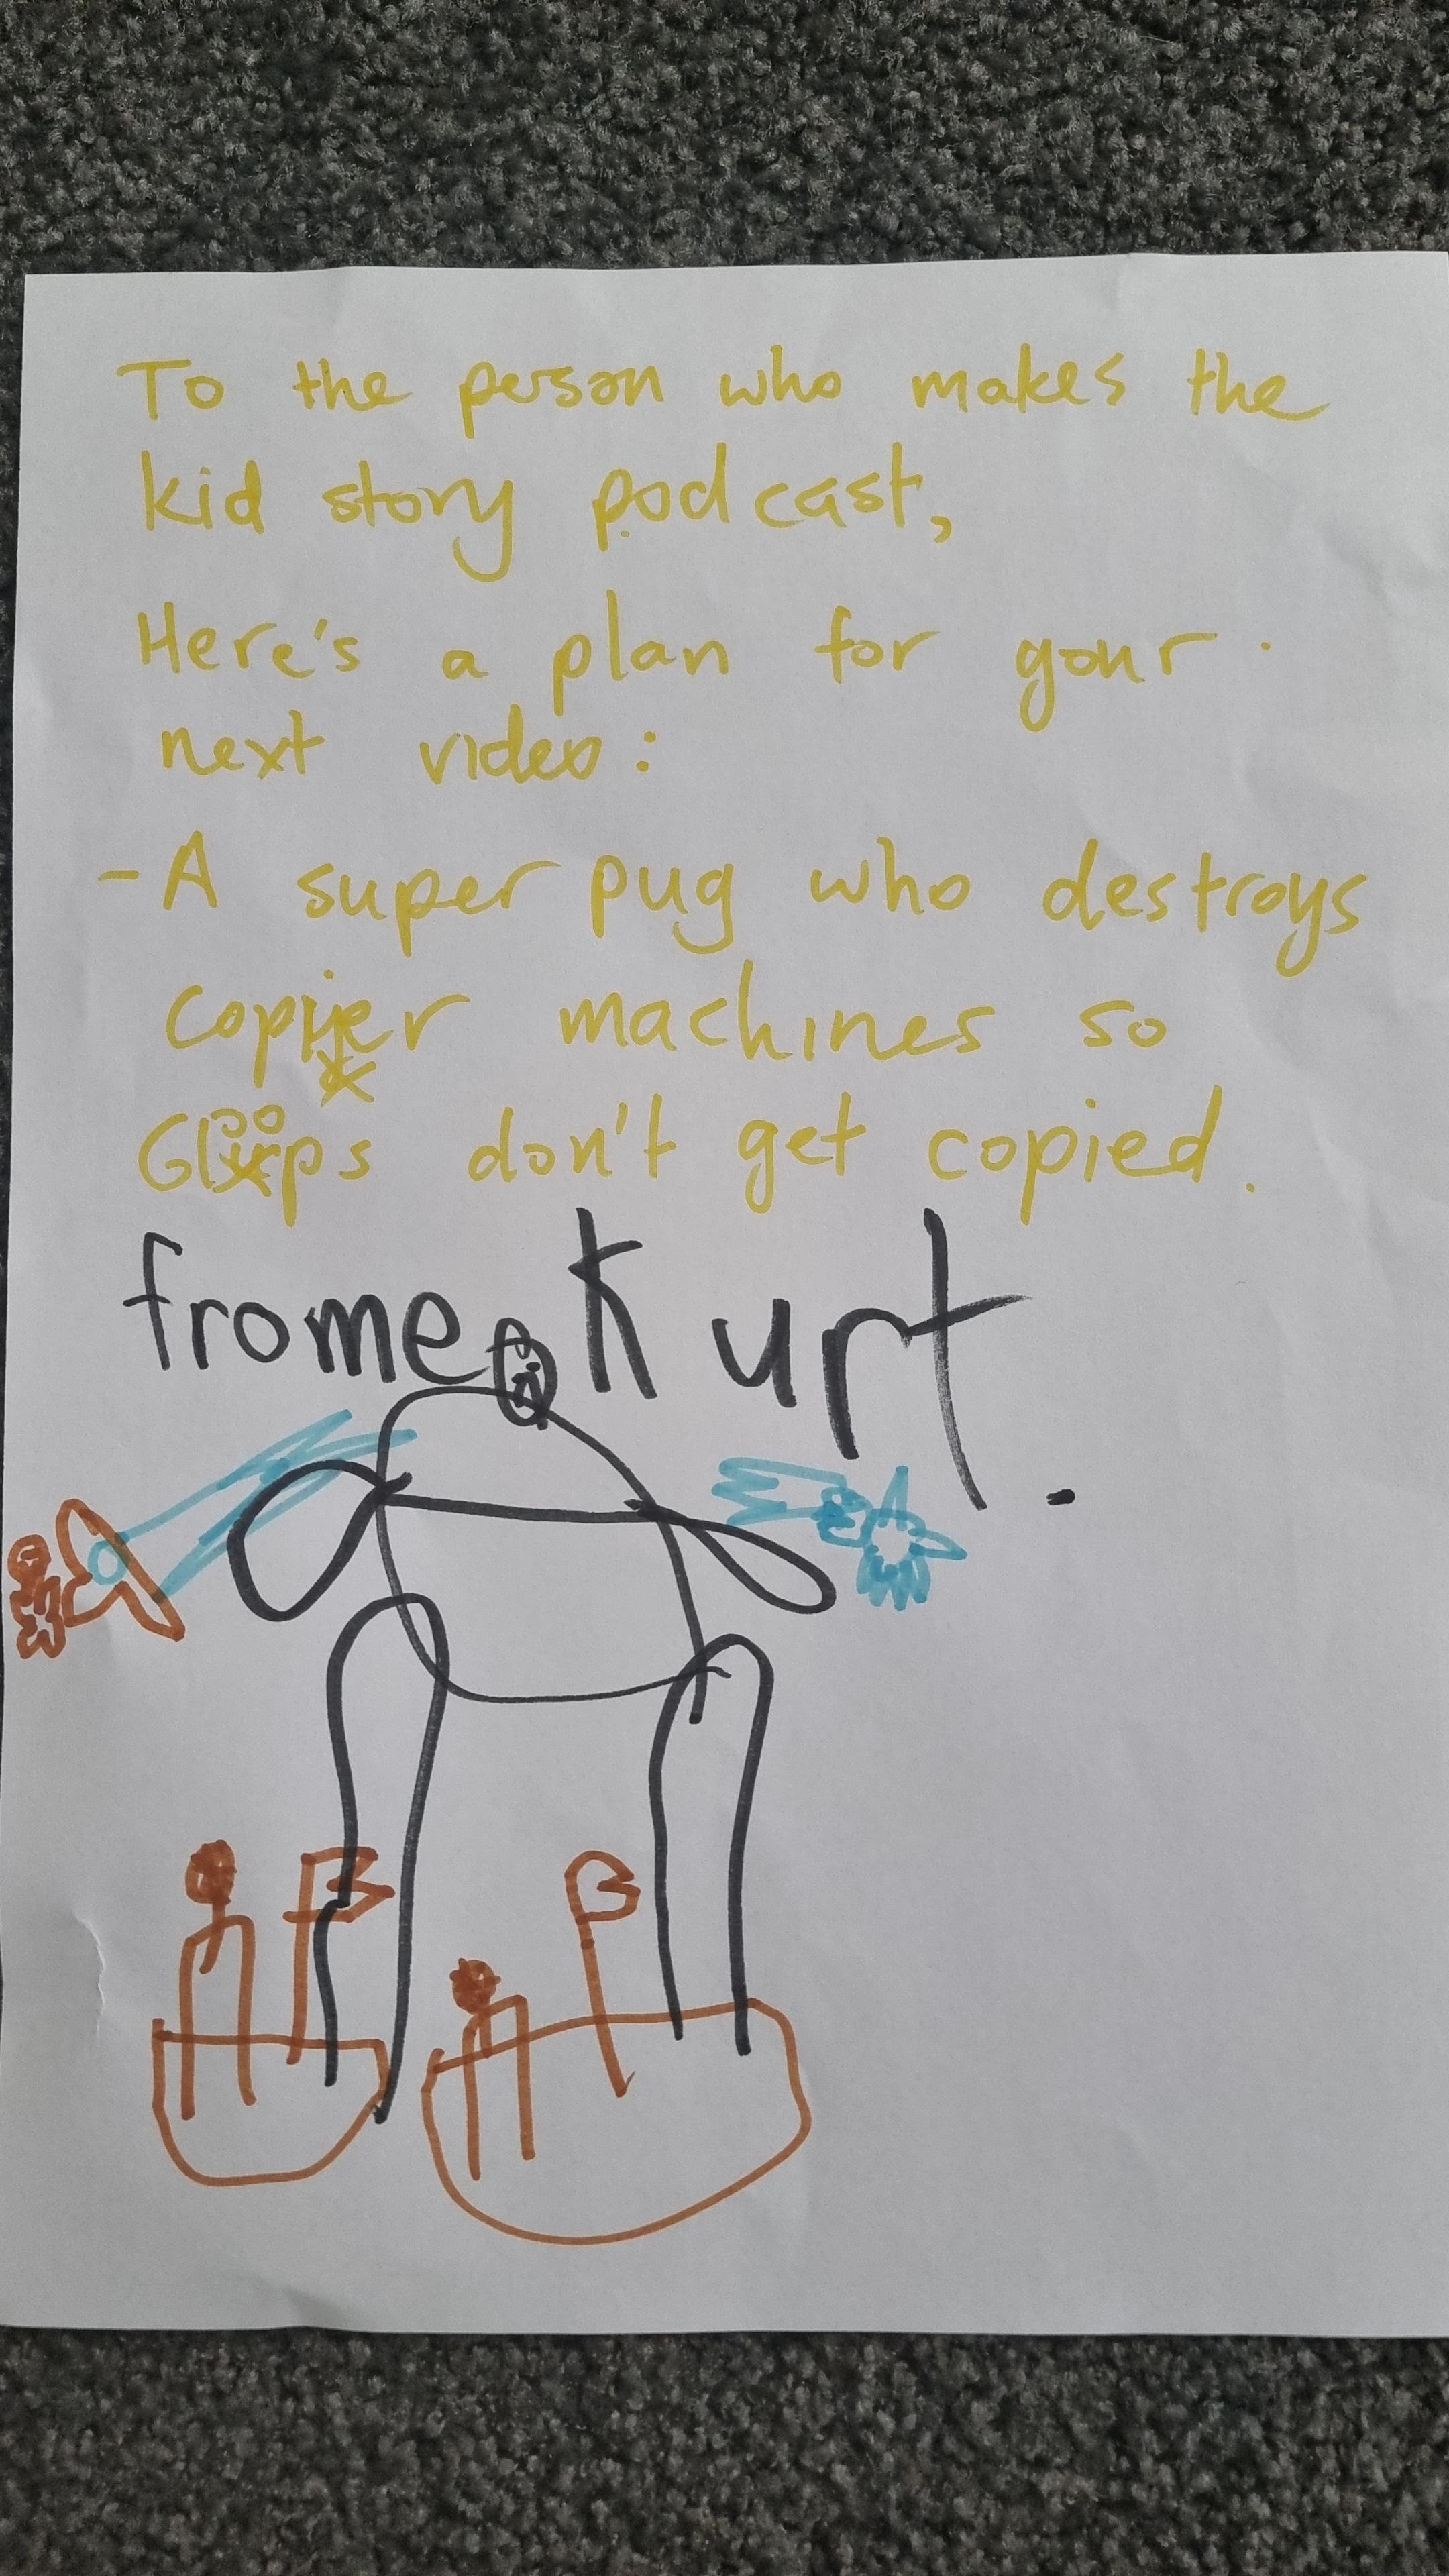 To the person who makes the
kid story podcast,
Here's a plan for your
next video:
- A super pug who destroys
copier machines so
Gloops don't get copied.
frome Kurt.